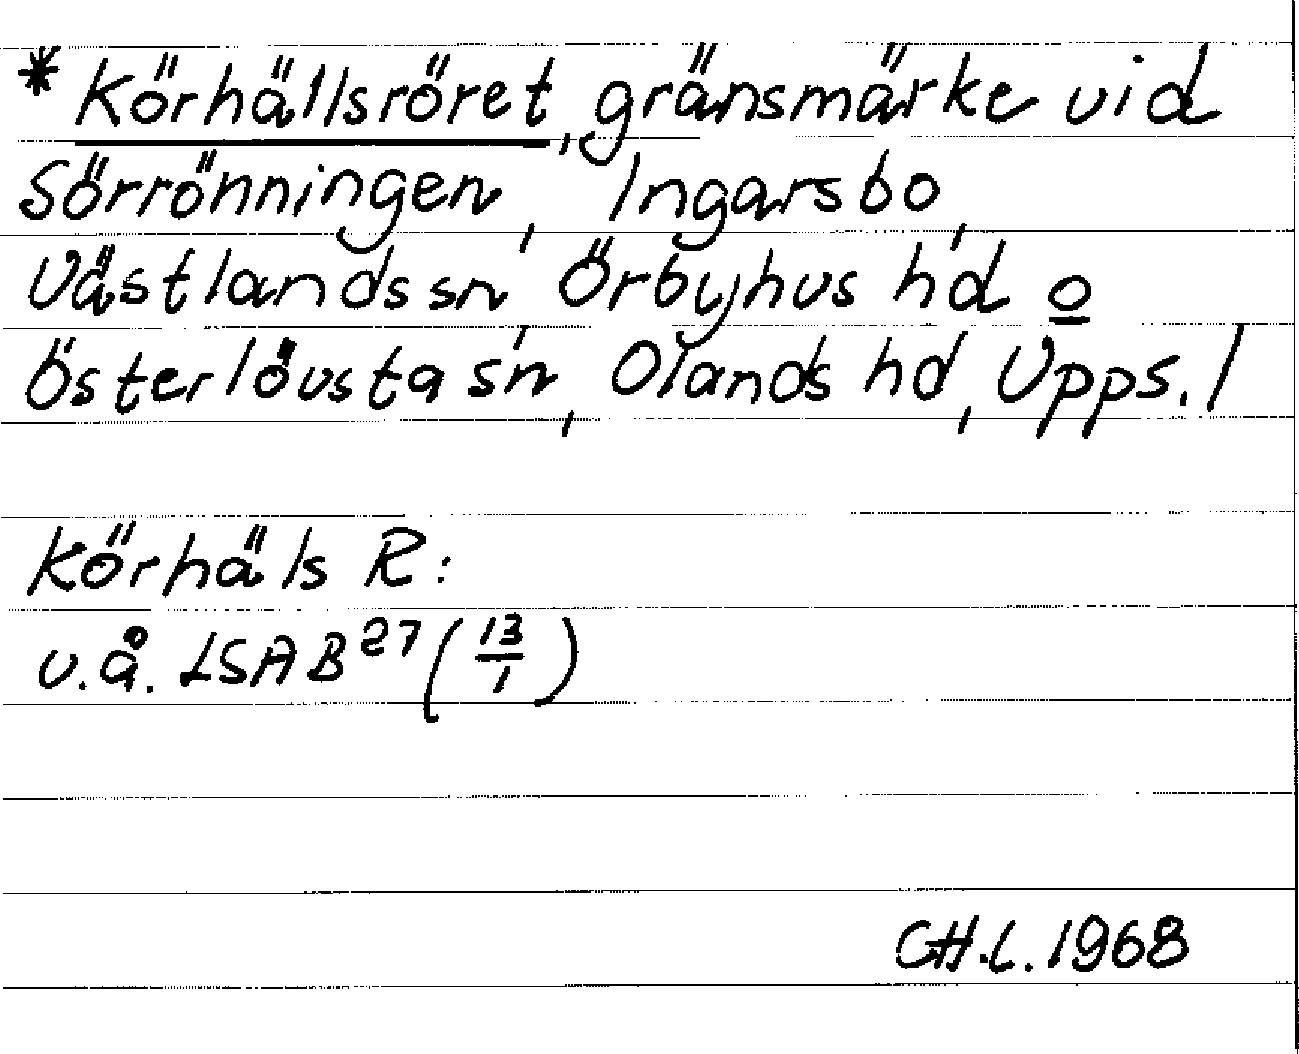 * Körhällsröret, gränsmärke vid
Sörrönningen, Ingarsbo,
Västlands sn, Örbyhus hd o
Österlövsta sn, Olands hd, Upps. l
Körhäls R:
u.å. LSA B 27 (13/1)
CH.L. 1968